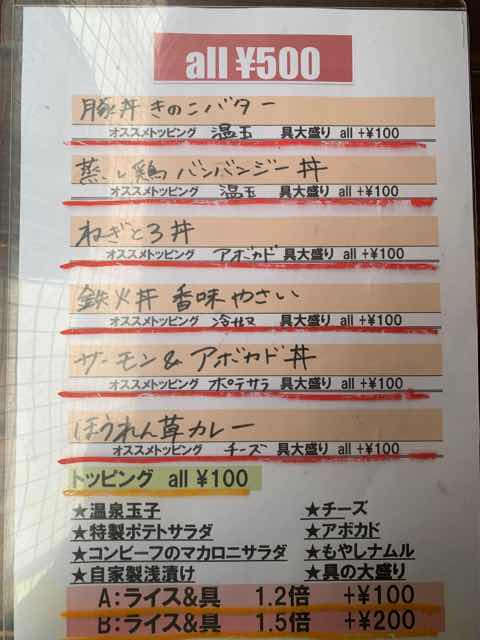 all ¥500
豚丼きのこバター
オススメトッピング 温玉 具大盛り all +¥100
蒸し鶏バンバンジー丼
オススメトッピング 温玉 具大盛り all +¥100
ねぎとろ丼
オススメトッピング アボカド 具大盛り all +¥100
鉄火丼 香味やさい
オススメトッピング 冷奴 具大盛り all +¥100
サーモン&アボカド丼
オススメトッピング ポテサラ 具大盛り all +¥100
ほうれん草カレー
オススメトッピング チーズ 具大盛り all +¥100
トッピング all ¥100
★温泉玉子 ★チーズ
★特製ポテトサラダ ★アボカド
★コンビーフのマカロニサラダ ★もやしナムル
★自家製浅漬け ★具の大盛り
A:ライス&具 1.2倍 +¥100
B:ライス&具 1.5倍 +¥200